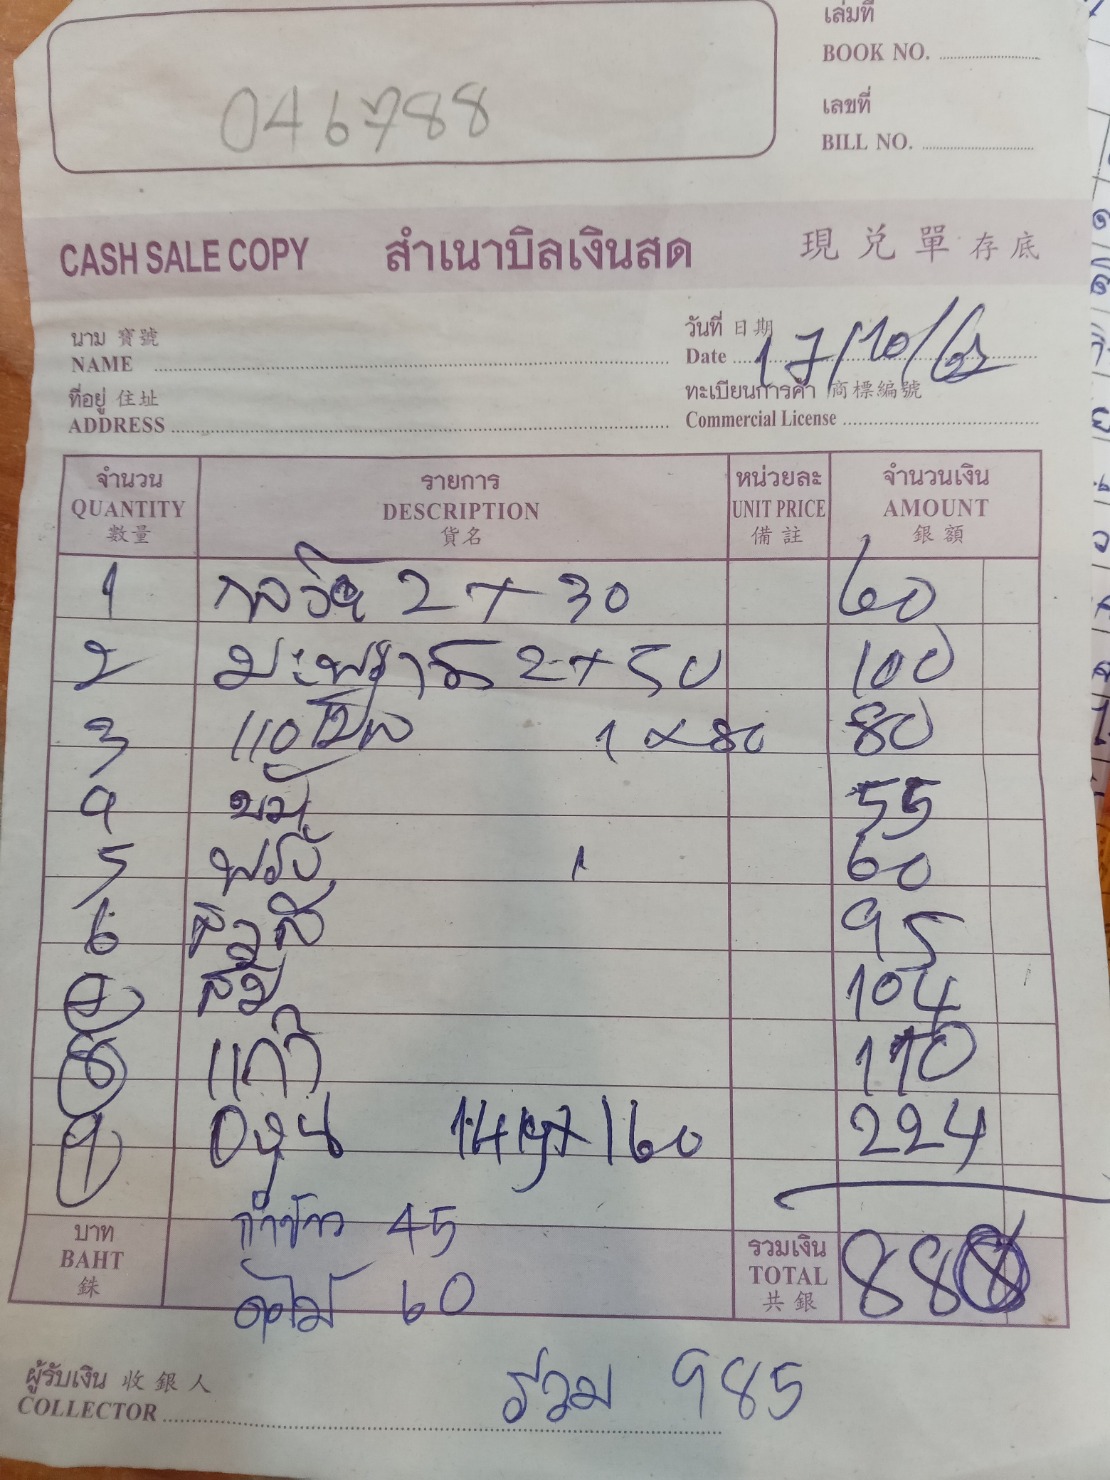 เล่มที่
BOOK NO.
046788
เลขที่
BILL NO.
CASH SALE COPY สำเนาบิลเงินสด 現兌單存底
นาม 寶號
NAME
วันที่ 日期
Date 17/10/62
ที่อยู่ 住址
ADDRESS
ทะเบียนการค้า 商標編號
Commercial License
จำนวน รายการ หน่วยละ จำนวนเงิน
QUANTITY DESCRIPTION UNIT PRICE AMOUNT
數量 貨名 備註 銀額
1 2 x 30 60
2 มะพร้าว 2 x 50 100
3 แอปเปิ้ล 1 x 80 80
4 55
5 ฝรั่ง 1 60
6 95
7 ส้ม 104
8 แก้ว 110
9 องุ่น 1.4 x 160 224
บาท
BAHT
銖
ก๋าข้าว 45
ดอกไม้ 60
รวมเงิน
TOTAL
共銀
888
ผู้รับเงิน 收銀人
COLLECTOR
รวม 985